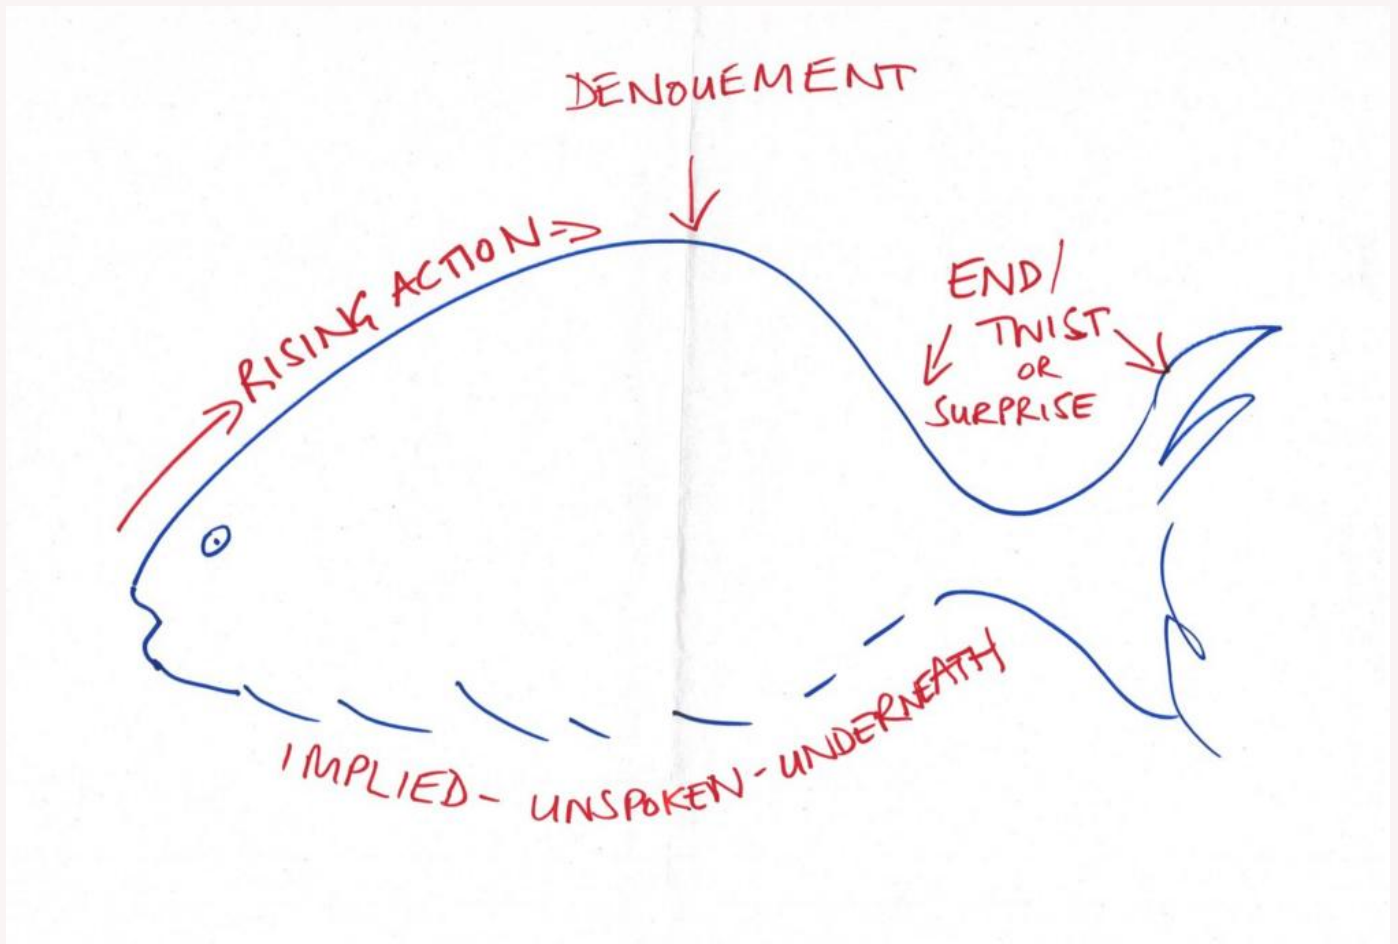 DENOUEMENT
RISING ACTION
END/
TWIST
OR
SURPRISE
IMPLIED - UNSPOKEN - UNDERNEATH